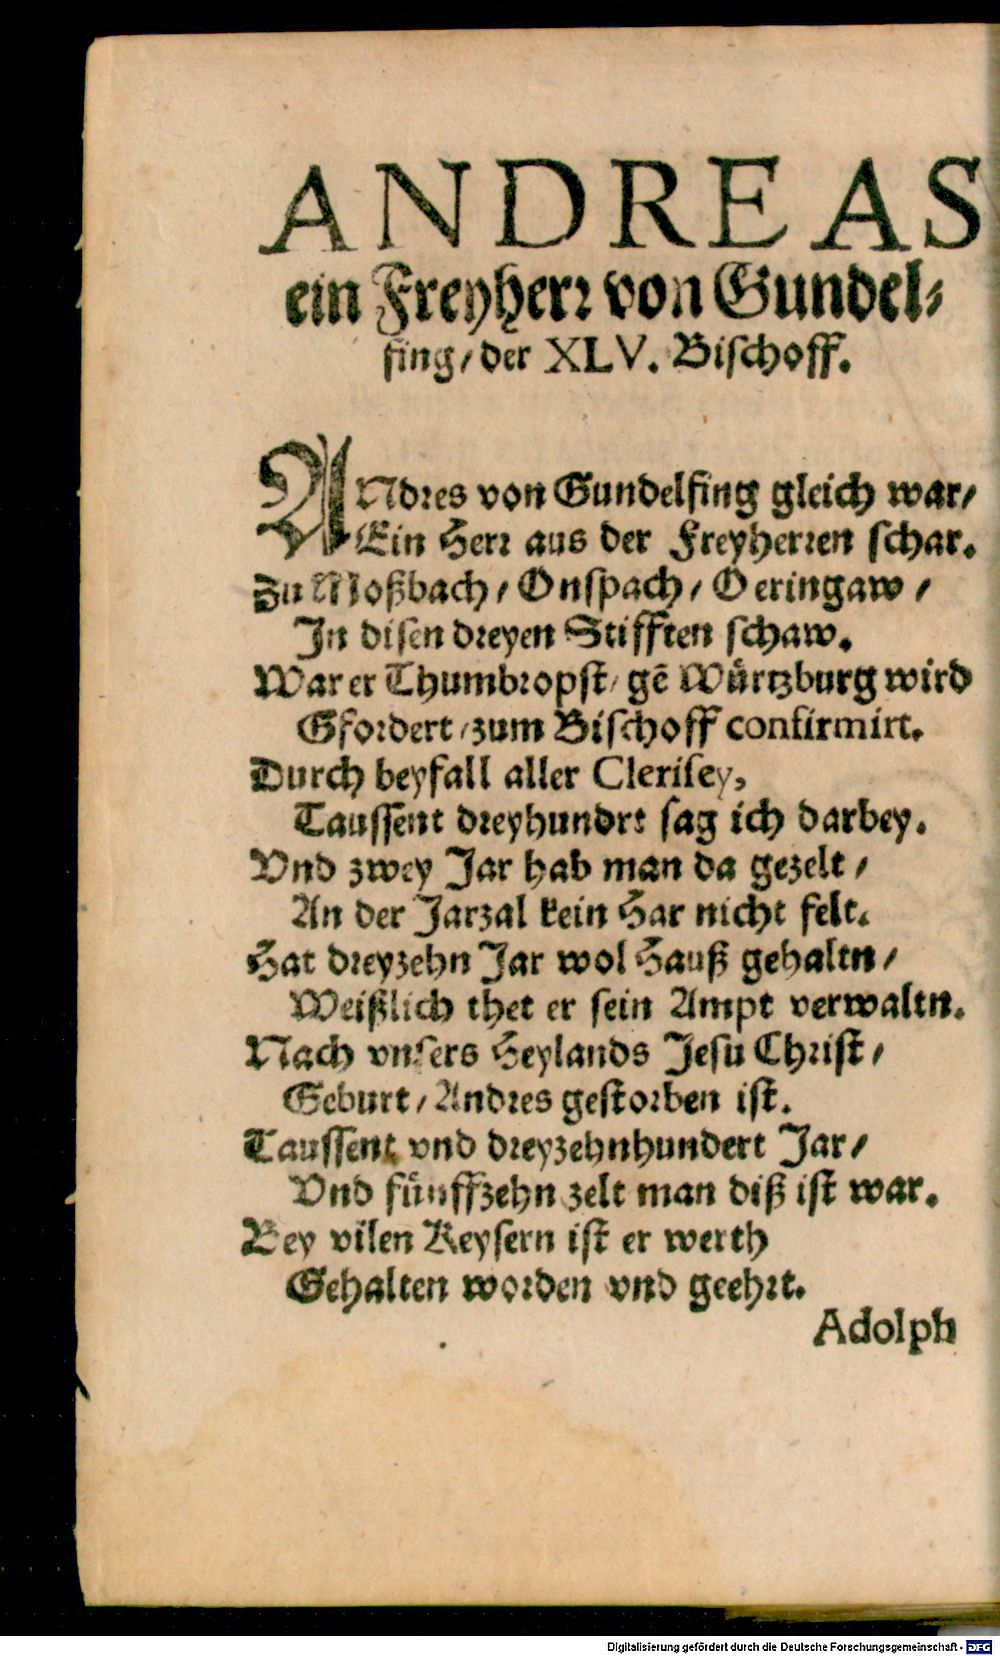 ANDREAS
ein Freyherr von Gundel⸗
fing/ der XLV. Bischoff.
ANdres von Gundelfing gleich war/
Ein Herr aus der Freyherren schar.
Zu Moßbach/ Onspach/ Oeringaw/
In disen dreyen Stifften schaw.
War er Thumbropst/ gē Würtzburg wird
Gfordert/ zum Bischoff confirmirt.
Durch beyfall aller Clerisey,
Taussent dreyhundrt sag ich darbey.
Vnd zwey Jar hab man da gezelt/
An der Jarzal kein Har nicht felt.
Hat dreyzehn Jar wol Hauß gehaltn/
Weißlich thet er sein Ampt verwaltn.
Nach vnsers Heylands Jesu Christ/
Geburt/ Andres gestorben ist.
Taussent vnd dreyzehnhundert Jar/
Vnd fünffzehn zelt man diß ist war.
Bey vilen Keysern ist er werth
Gehalten worden vnd geehrt.
Adolph
Digitalisierung gefördert durch die Deutsche Forschungsgemeinschaft - DFG